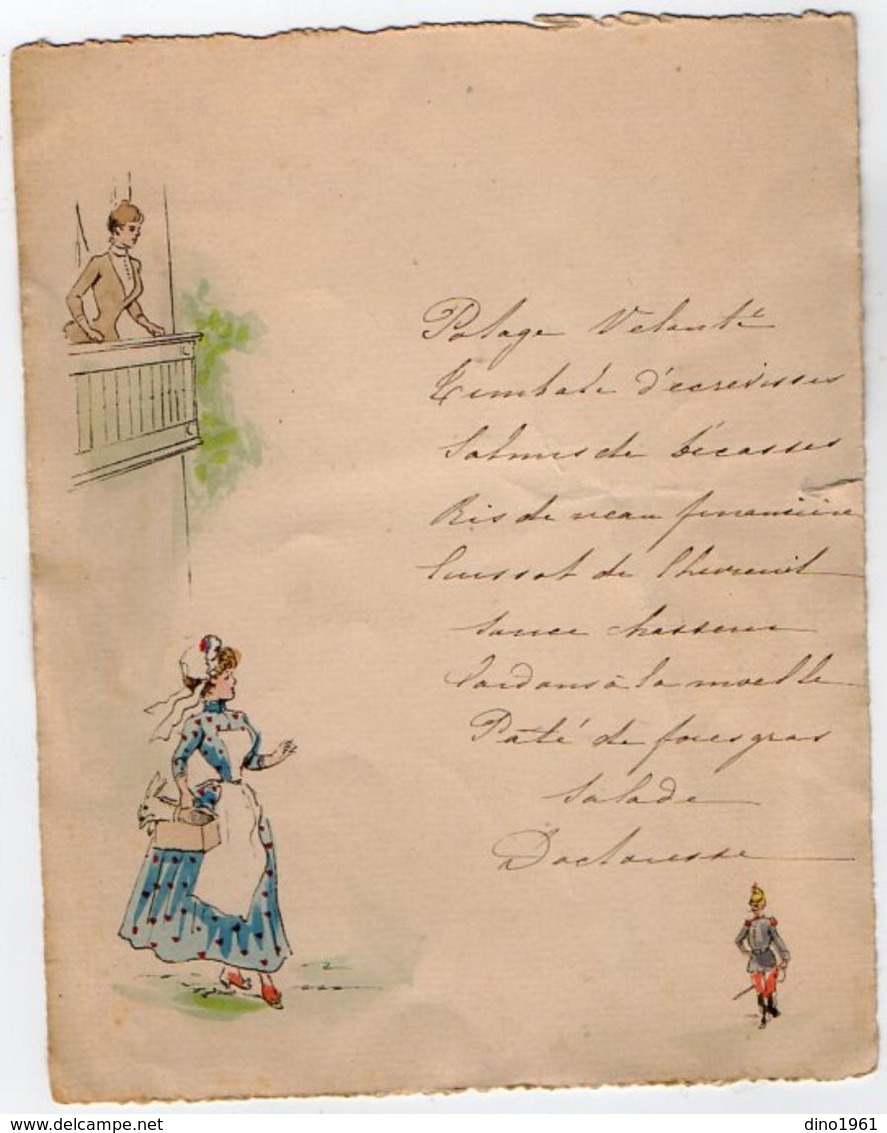 Potage Velouté
Timbale d'ecrevisses
Salmis de bécasses
Ris de veau financière
Cuissot de Chevreuil
Sauce chasseur
Cardons à la moelle
Paté de foies gras
Salade
Doctoresse
delcampe.net
dino1961